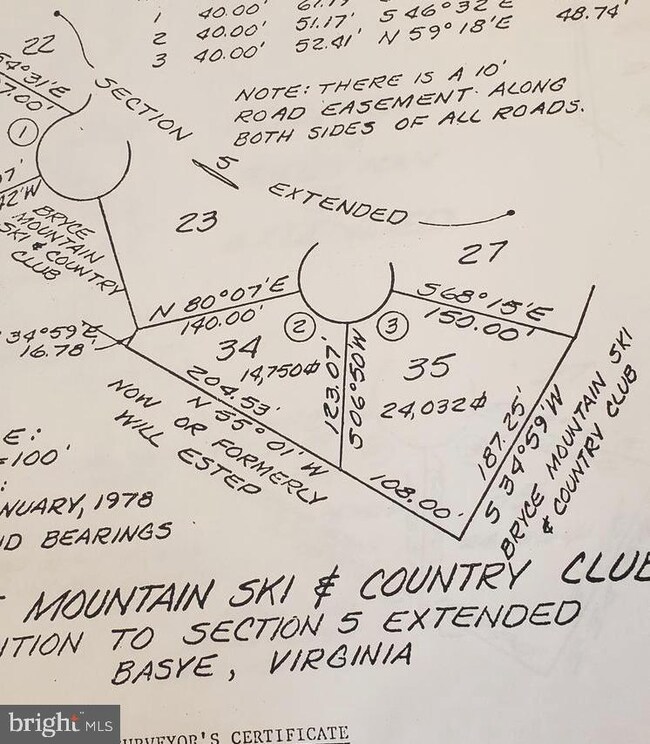 1 40.00'
2 40.00' 51.17' S 46°32'E 48.74'
3 40.00' 52.41' N 59°18'E
NOTE: THERE IS A 10'
ROAD EASEMENT ALONG
BOTH SIDES OF ALL ROADS.
22
54°31'E
7.00'
1
42'W
SECTION 5 EXTENDED
BRYCE
MOUNTAIN
SKI & COUNTRY
CLUB
23
27
N 80°07'E
140.00'
2
3
S68°15'E
150.00'
34°59'E
16.78'
34
14,750
35
24,032
123.07'
S06°50'W
204.53'
N 55°01'W
108.00'
187.25'
S 34°59'W
NOW OR FORMERLY
WILL ESTEP
BRYCE MOUNTAIN SKI
& COUNTRY CLUB
E:
=100'
:
NUARY, 1978
D BEARINGS
MOUNTAIN SKI & COUNTRY CLUB
ITION TO SECTION 5 EXTENDED
BASYE, VIRGINIA
SURVEYOR'S CERTIFICATE
bright MLS